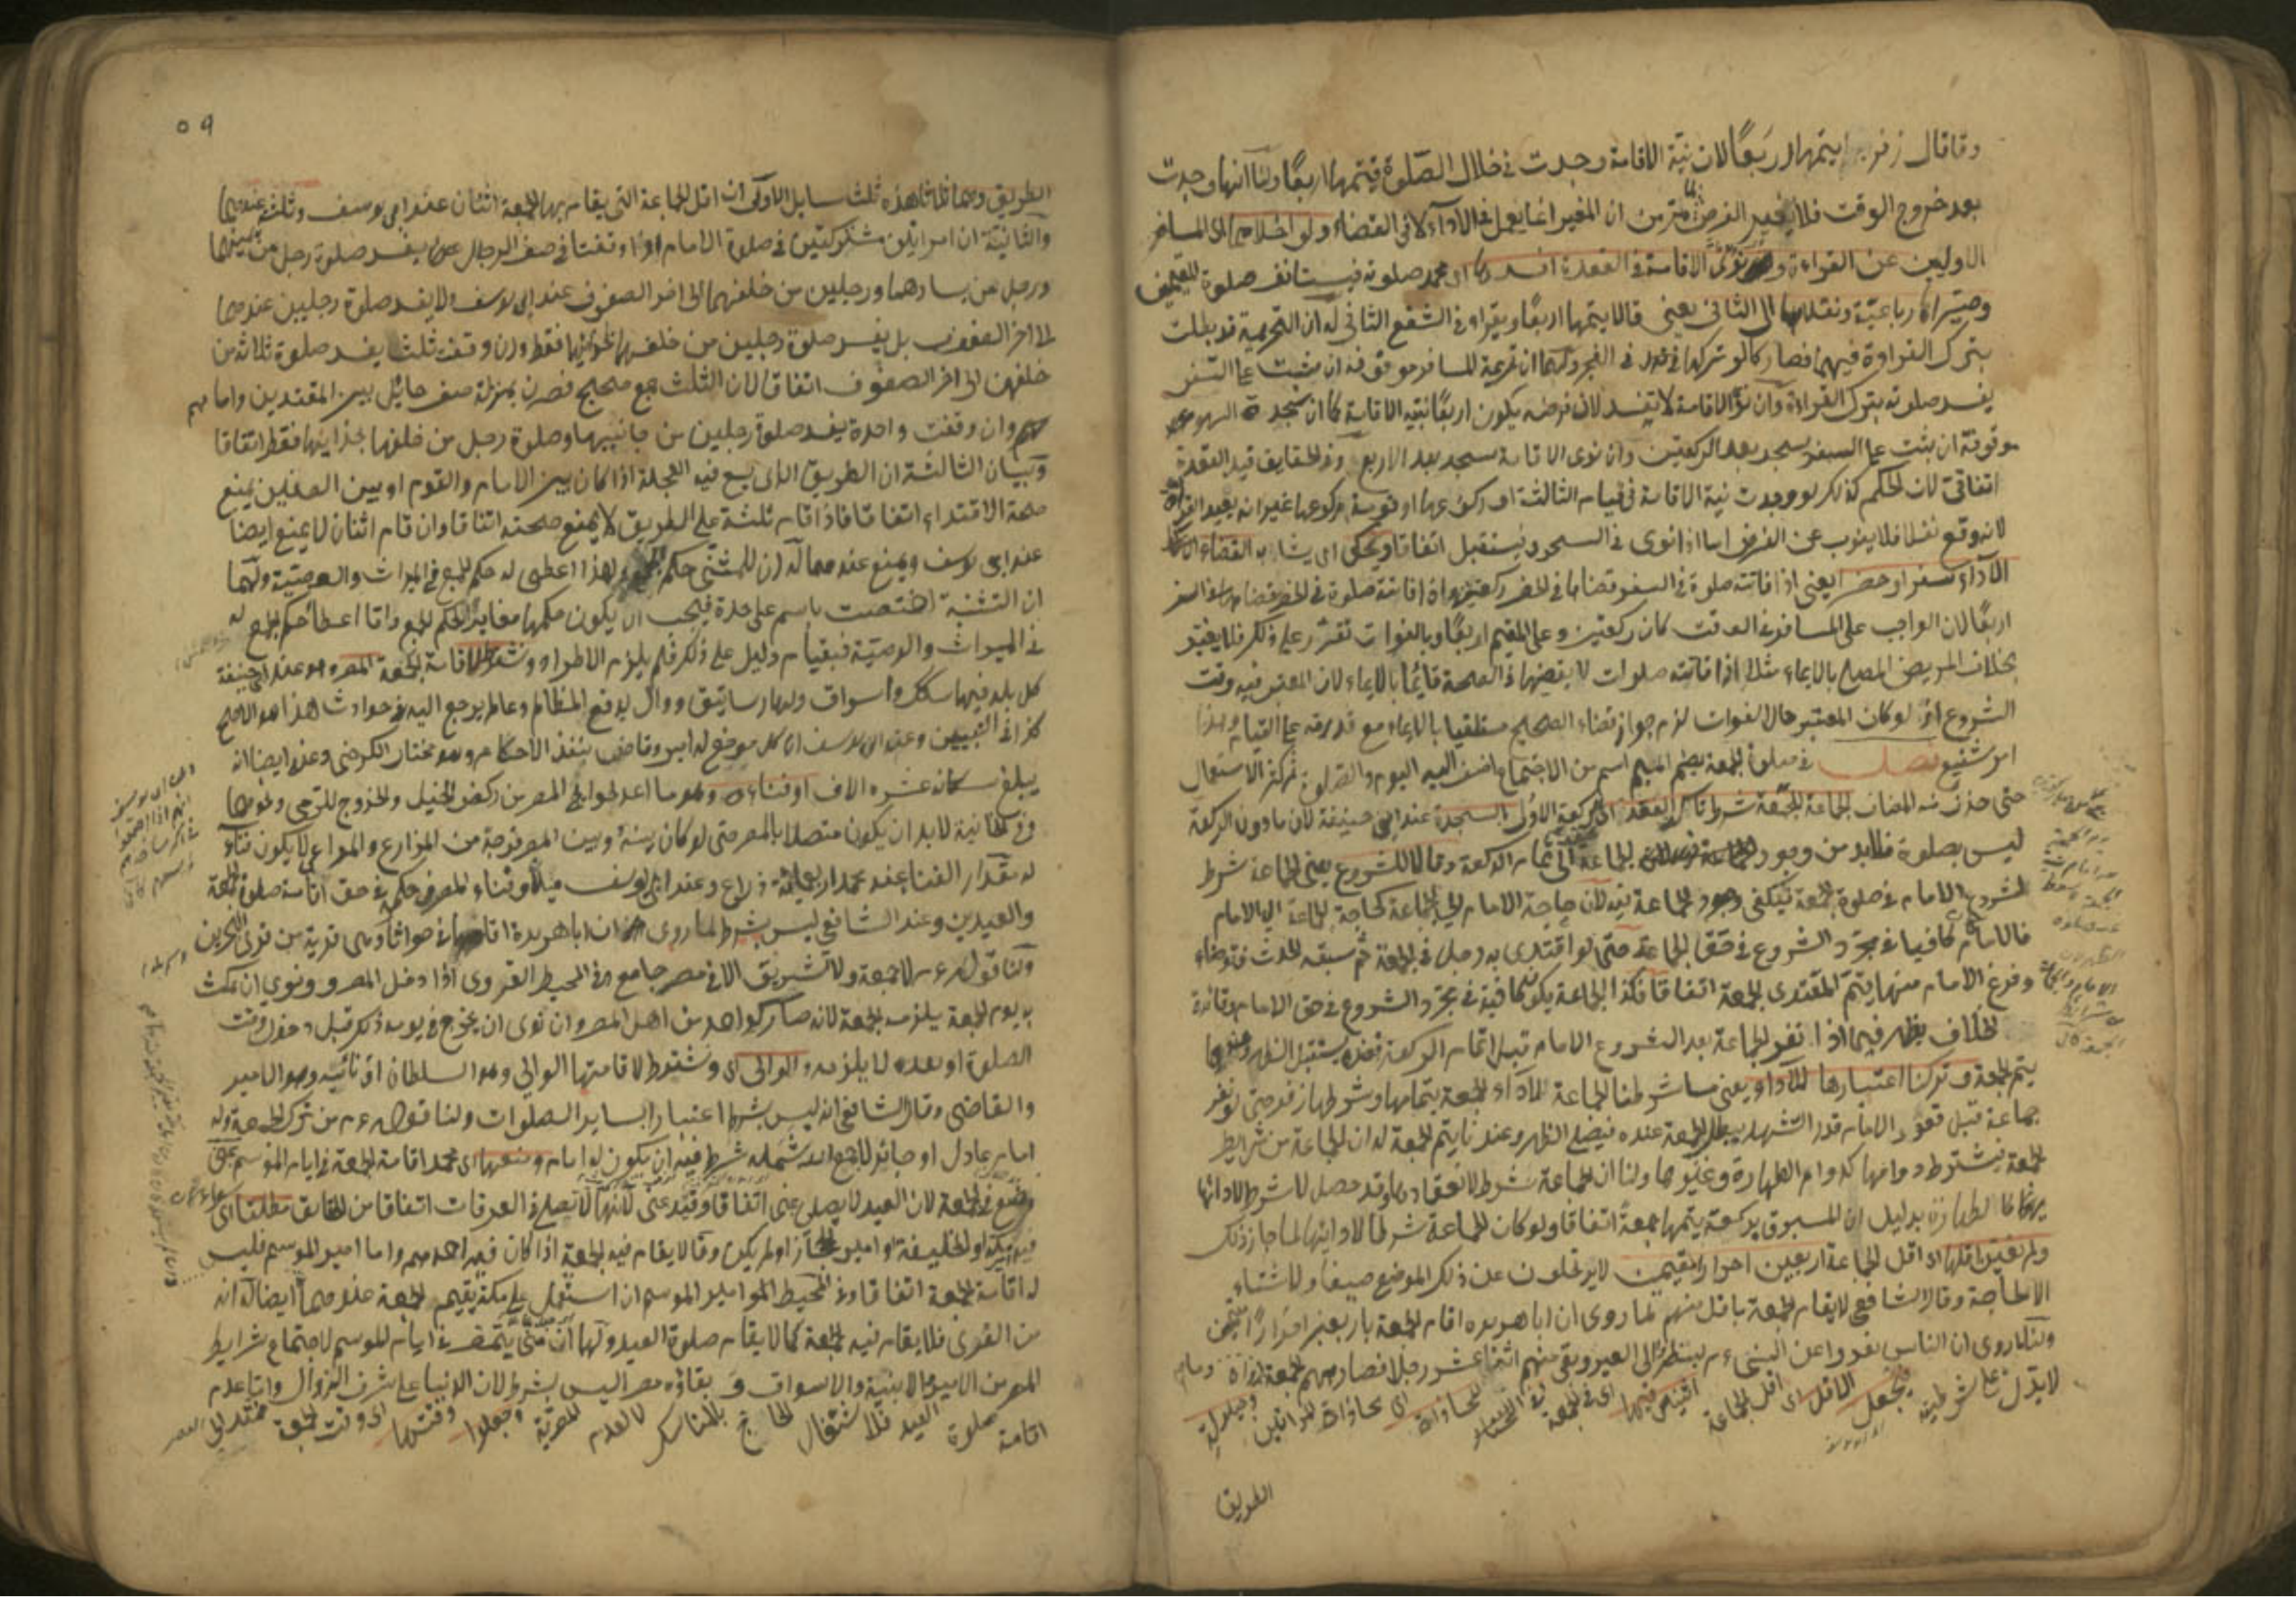 وقال زفر يتمها اربعًا لان نية الاقامة وجدت في خلال الصلوة فيتمها اربعًا ولنا انها وجدت
بعد خروج الوقت فلا يتغير الفرض لما مر من ان المغير انما يعمل في الاداء لا في القضاء ولو اخلاهما اى المسافر
الاوليين عن القراءة ونوى الاقامة في القعدة افسدها اى محمد صلوته فيستانف صلوة المقيمين
وصيراها رباعية ونقلاها الى الثاني يعني قالا يتمها اربعًا ويقراء في الشفع الثاني له ان التحريمة قد بطلت
بترك القراءة فيهما فصار كما لو تركها في الفجر ولهما ان تحريمة المسافر موقوفة ان ثبت على السفر
يفسد صلوته بترك القراءة وان نوى الاقامة لا تفسد لان فرضه يكون اربعًا بنية الاقامة كما ان سجدة السهو
موقوفة ان ثبت على السفر يسجد بعد الركعتين وان نوى الاقامة يسجد بعد الاربع وفي الحقايق قيد القعدة
اتفاقي لان الحكم كذلك لو وجدت نية الاقامة في قيام الثالثة او ركوعها او قومة ركوعها غير انه يعيد
لانه وقع نفلا فلا ينوب عن الفرض اما اذا نوى في السجود يستقبل اتفاقا ويحكى اى يشابه القضاء
الاداء سفرا وحضرا يعني اذا فاتته صلوة في السفر قضاها في الحضر ركعتين واذا فاتته صلوة في الحضر قضاها في السفر
اربعًا لان الواجب على المسافر في الوقت كان ركعتين وعلى المقيم اربعًا وبالفوات تقرر على ذلك فلا يتغير
بخلاف المريض المصلي بالايماء مثلا اذا فاتته صلوات لا يقضيها في الصحة قائمًا بالايماء لان المعتبر فيه وقت
الشروع اذ لو كان المعتبر حال الفوات لزم جواز قضاء الصحيح مستلقيا بالايماء مع قدرته على القيام وهذا
امر شنيع فصل في صلوة الجمعة بضم الميم اسم من الاجتماع اضيف اليه اليوم والصلوة ثم كثر الاستعمال
حتى حذف منه المضاف الجماعة للجمعة شرط تاكد العقد اى الركعة الاولى بالسجدة عند ابي حنيفة لان ما دون الركعة
ليس بصلوة فلا بد من وجود الجماعة الى تمام الركعة وقالا للشروع يعني الجماعة شرط
لشروع الامام في صلوة الجمعة فيكفي وجود الجماعة فيه لان حاجة الامام الى الجماعة كحاجة الجماعة الى الامام
فالامام كان كافيا في مجرد الشروع في حق الجماعة حتى لو اقتدى به رجل في الجمعة ثم سبقه الحدث فتوضاء
وفرغ الامام منها يتم المقتدى الجمعة اتفاقا فكذا الجماعة يكون كافية في مجرد الشروع في حق الامام وفائدة
الخلاف يظهر فيما اذا نفر الجماعة بعد الشروع الامام قبل اتمام الركعة فعنده يستقبل الظهر وعندهما
يتم الجمعة وتركنا اعتبارها للاداء يعني ما شرطنا الجماعة لاداء الجمعة بتمامها وشرطها زفر حتى لو نفر
جماعة قبل قعود الامام قدر التشهد يبطل الجمعة عنده فيصلي الظهر وعندنا يتم الجمعة له ان الجماعة من شرايط
الجمعة فيشترط دوامها كدوام الطهارة وغيرها ولنا ان الجماعة شرط لانعقادها وقد حصل لا شرط لادائها
بدليل ان المسبوق بركعة يتمها جمعةً اتفاقا ولو كان الجماعة شرطا لادائها لما جاز ذلك
ولم نعين اقلها اى اقل الجماعة اربعين احرارا مقيمين لا يرتحلون عن ذلك الموضع صيفا ولا شتاء
الا لحاجة وقال الشافعي لا يقام الجمعة باقل منهم لما روى ان ابا هريرة اقام الجمعة باربعين احرارًا مقيمين
ولنا ما روى ان الناس نفروا عن النبي ءم ينتظرون الى العير وبقي منهم اثنا عشر رجلا فصلى بهم الجمعة
لا يدل على شرطيته ويجعل الاقل اى اقل الجماعة اثنين فيها اى في الجمعة في النساء لمحاذاة اى محاذاة امراتين وحيلولة
الطريق
٥٩
الطريق وهما ثلاثا هذه ثلث مسايل الاولى ان اقل الجماعة التي يقام بها الجمعة اثنان عند ابي يوسف وثلثة عندهما
والثانية ان امراتين مشتركتين في صلوة الامام اذا وقفتا في صف الرجال يفسد صلوة رجل من يمينهما
ورجل من يسارهما ورجلين من خلفهما الى اخر الصفوف عند ابى يوسف ولا يفسد صلوة رجلين عندهما
الى اخر الصفوف بل يفسد صلوة رجلين من خلفهما بحذائهما فقط وان وقفت ثلث يفسد صلوة ثلاثة من
خلفهن الى اخر الصفوف اتفاقا لان الثلث جمع صحيح فصرن بمنزلة صف حائل بين المقتدين وامامهم
وان وقفت واحدة يفسد صلوة رجلين من جانبيها وصلوة رجل من خلفها بحذائها فقط اتفاقا
وبيان الثالثة ان الطريق الذى يسع فيه العجلة اذا كان بين الامام والقوم او بين الصفين يمنع
صحة الاقتداء اتفاقا فاذا قام ثلثة على الطريق لا يمنع صحته اتفاقا وان قام اثنان لا يمنع ايضا
عند ابى يوسف ويمنع عندهما له ان للمثنى حكم الجمع ولهذا اعطى له حكم الجمع في الميراث والوصية ولهما
ان التثنية اختصت باسم على حدة فيجب ان يكون حكمها مغايرا لحكم الجمع وانما اعطاء حكم الجمع له
في الميراث والوصية فبقيام دليل على ذلك فلم يلزم الاطراد وشرط لاقامة الجمعة المصر وهو عند ابى حنيفة
كل بلد فيها سكك واسواق ولها رساتيق ووال يدفع المظالم وعالم يرجع اليه في حوادث هذا هو الاصح
كذا في التبيين وعند ابى يوسف انه كل موضع له امير وقاض ينفذ الاحكام وهو مختار الكرخى وعنه ايضا انه
يبلغ سكانه عشرة الاف او فناءه وهو ما اعد لحوايج المصر من ركض الخيل والخروج للرمى ونحوهما
وفي الخانية لا بد ان يكون متصلا بالمصر حتى لو كان بينه وبين المصر فرجة من المزارع والمراعي لا يكون فناء
له مقدار الفناء عند محمد اربعمائة ذراع وعند ابى يوسف ميلان وفناء المصر في حكمه في حق اقامة صلوة الجمعة
والعيدين وعند الشافعي ليس بشرط لما روى ان ابا هريرة اقامها في جواثا وهي قرية من قرى البحرين
ولنا قوله ءم لا جمعة ولا تشريق الا في مصر جامع وفي المحيط القروى اذا دخل المصر ونوى ان يمكث
به يوم الجمعة يلزمه الجمعة لانه صار كواحد من اهل المصر وان نوى ان يخرج في يومه ذلك قبل دخول وقت
الصلوة او بعده لا يلزمه والوالى اى وشرط لاقامتها الوالي وهو السلطان او نائبه وهو الامير
والقاضي وقال الشافعي انه ليس بشرط اعتبارا بساير الصلوات ولنا قوله ءم من ترك الجمعة وله
امام عادل او جائر لا جمع الله شمله شرط فيه ان يكون له امام ومنعها اى محمد اقامة الجمعة في ايام الموسم بمنى
وضع في الجمعة لان العيد لا يصلي بمنى اتفاقا وقيد بمنى لانها لا تصلى في العرفات اتفاقا من الحقايق مطلقا اى
فيه او الخليفة او امير الحجاز او لم يكن وقالا يقام فيه الجمعة اذا كان فيه احدهم واما امير الموسم فليس
له اقامة الجمعة اتفاقا وفي المحيط امير الموسم ان استعمل على مكة يقيم الجمعة عندهما ايضا له انه
من القرى فلا يقام فيه الجمعة كما لا يقام صلوة العيد ولهما ان منى يتمصر في ايام الموسم لاجتماع شرايط
المصر من الامير والابنية والاسواق وبقاؤه مصرا ليس بشرط لان الدنيا على شرف الزوال واما عدم
اقامة صلوة العيد فلاشتغال الحاج بالمناسك لا لعدم المصرية وجعلوا وقتها اى وقت الجمعة